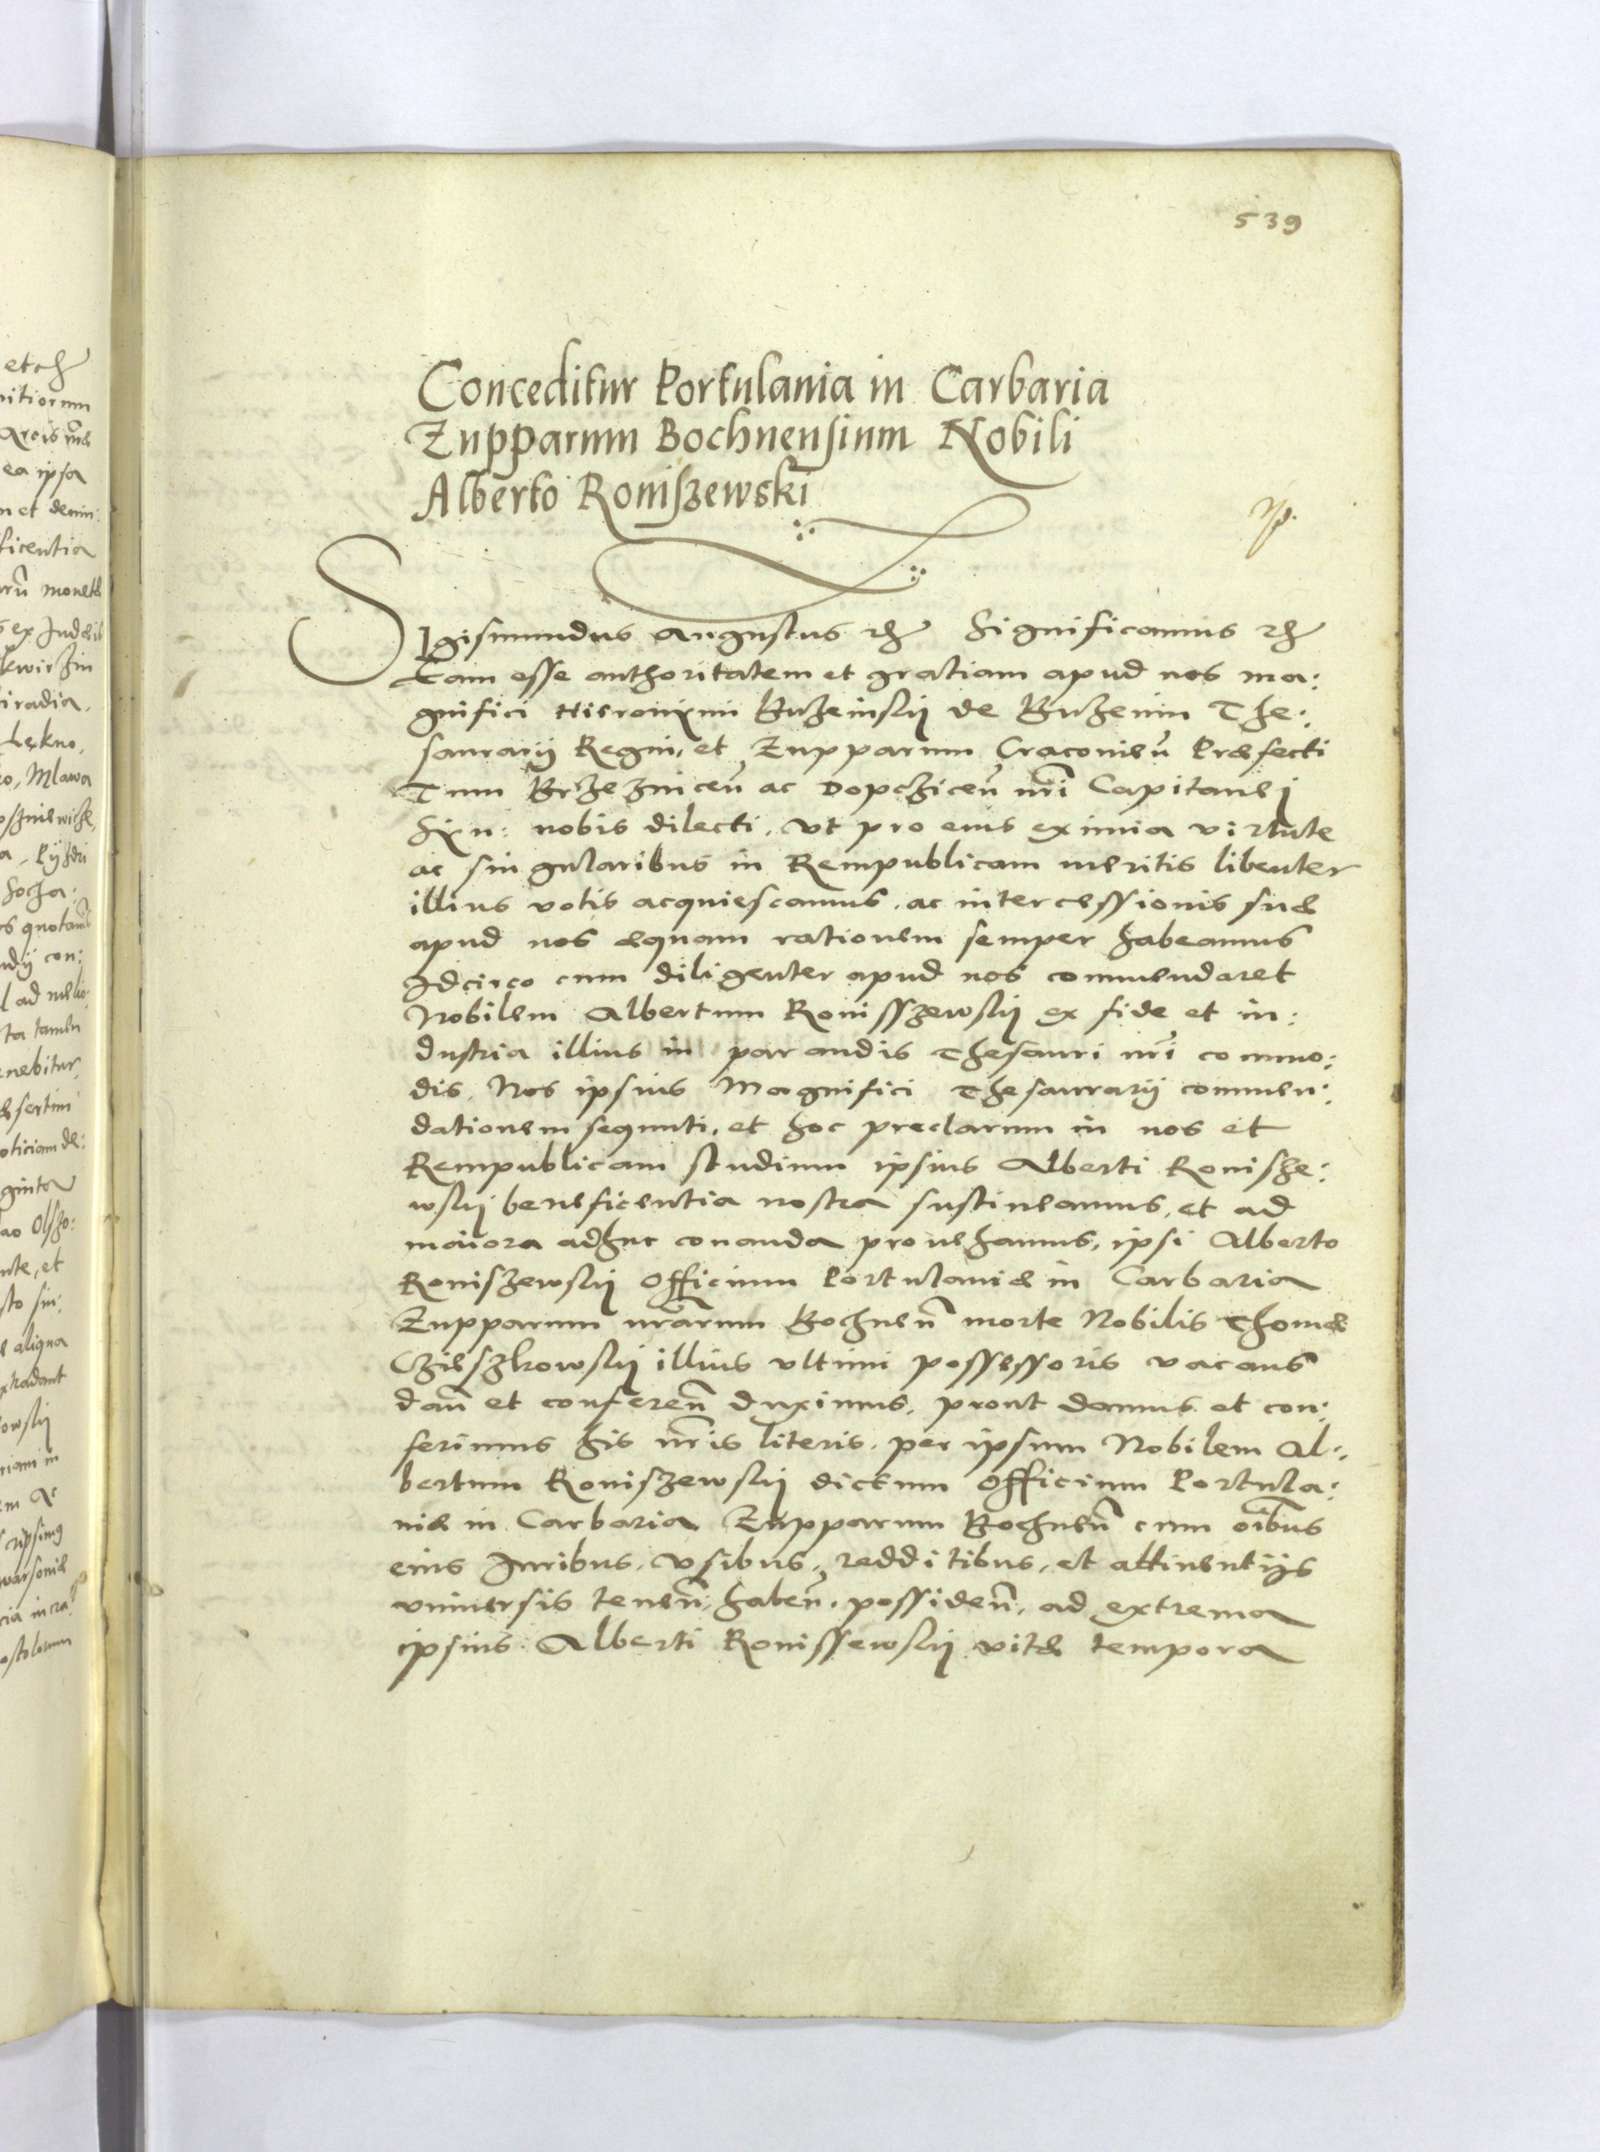 539
Conceditur Portulania in Carbaria
Zupparum Bochnensium Nobili
Alberto Roniszewski
Sigismundus Augustus etc Significamus etc
Eam esse authoritatem et gratiam apud nos ma:
gnifici Hieronimi Buzeinskij de Buzenin The:
saurarij Regni, et Zupparum Craconien̄ Præfecti
Tum Brzeznicen̄ ac Dopczicen̄ nr̄i Capitanej
Syn: nobis dilecti, vt pro eius eximia virtute
ac singularibus in Rempublicam meritis libenter
illius votis acquiescamus, ac intercessionis suæ
apud nos æquam rationem semper habeamus
Idcirco cum diligenter apud nos commendaret
Nobilem Albertum Ronisszewskij ex fide et in:
dustria illius in parandis Thesauri nr̄i commo:
dis, Nos ipsius Magnifici Thesaurarij commen:
dationem sequuti, et hoc preclarum in nos et
Rempublicam studium ipsius Alberti Ronisze:
wskij beneficentia nostra sustineamus, et ad
maiora adhuc conanda provehamus, ipsi Alberto
Roniszewskij Officium Portulaniæ in Carbaria
Zupparum nr̄arum Bochnen̄ morte Nobilis Thomæ
Czieszkowskij illius vltimi possessoris vacans
dan̄ et conferen̄ duximus, prout damus et con:
ferimus his nr̄is literis, per ipsum Nobilem Al:
bertum Roniszewskij dictum Officium Portula:
niæ in Carbaria Zupparum Bochnen̄ cum oībus
eius Iuribus, vsibus, redditibus, et attinentijs
vniuersis tenen̄, haben̄, possiden̄, ad extrema
ipsius Alberti Ronissewskij vitæ tempora